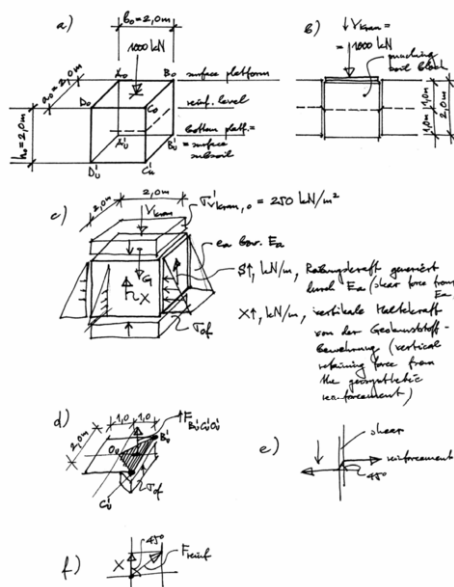 a)
b₀=2,0m
1000 kN
a₀=2,0m
A₀
B₀
surface platform
D₀
C₀
reinf. level
h₀=2,0m
A'ᵤ
B'ᵤ
bottom platf.=
=surface
subsoil
D'ᵤ
C'ᵤ
b)
↓ Vkran =
= 1000 kN
punching
soil block
1,0m 1,0m
2,0m
c)
2,0m
2,0m
Vkran
σ'vkran,0 = 250 kN/m²
ea bzw. Ea
G
X
S↑, kN/m, Reibungskraft generiert
durch Ea (shear force from
Ea)
σof
X↑, kN/m, vertikale Haltekraft
von der Geokunststoff-
bewehrung (vertical
retaining force from
the geosynthetic
reinforcement)
d)
1,0 1,0
↑F B'ᵤC'ᵤO'ᵤ
B'ᵤ
2,0m
O₀
σof
C'ᵤ
e)
shear
reinforcement
45°
f)
45°
X
Freinf